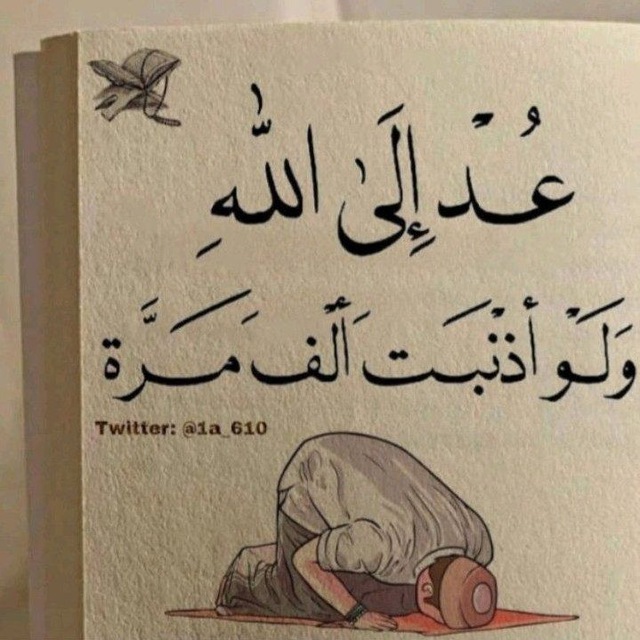 عُدْ إِلَىٰ اللّٰهِ
وَلَوْ أَذْنَبَت أَلْفَ مَرَّة
Twitter: @1a_610